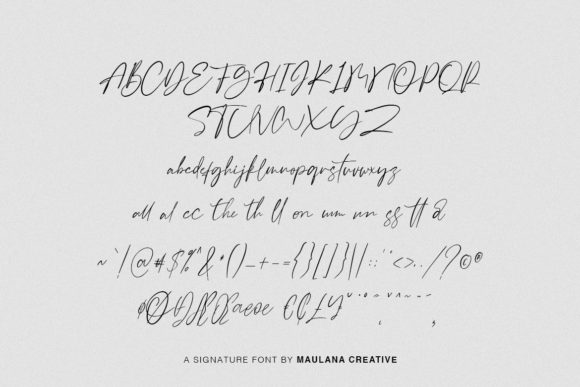 ABCDEFGHIJKLMNOPQR
STUVWXYZ
abcdefghijklmnopqrstuvwxyz
all al cc the th ll on um un ss tt &
~`!@#$%^&*()_-+={}[]\||:;"'<>.,/?©®
€¢£¥
A SIGNATURE FONT BY MAULANA CREATIVE